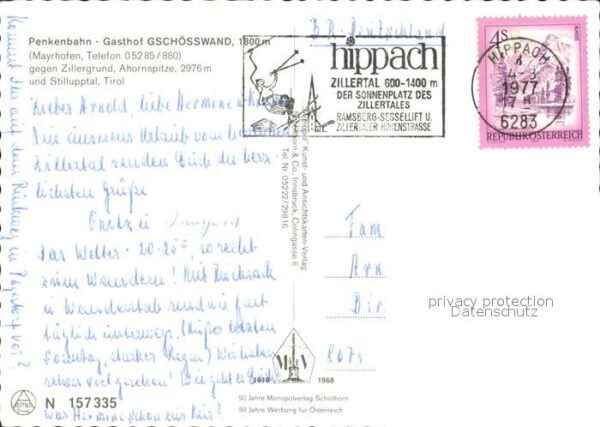 Penkenbahn - Gasthof GSCHÖSSWAND, 1800 m
(Mayrhofen, Telefon 05285/880)
gegen Zillergrund, Ahornspitze, 2976 m
und Stillupptal, Tirol
Lieber Arnold, liebe Hermine
Aus unserem Urlaub vom
Zillertal senden Euch die herz-
lichsten Grüße
Fritz u.
Das Wetter 20-25°, so reicht
zum Wandern! Mit Rucksack
u. Wanderstab sind wir fast
täglich unterwegs. (Außer letzten
Sonntag, starker Regen) Wir haben
schon viel gesehen! Wie geht es Euch
was Hermine schon zur Kur?
Kommt Ihr auf dem Rückweg in vor?
B.R. Deutschland
hippach
ZILLERTAL 600-1400 m
DER SONNENPLATZ DES
ZILLERTALES
RAMSBERG-SESSELLIFT U.
ZILLERTALER HÖHENSTRASSE
HIPPACH
1977
6283
4S
REPUBLIK ÖSTERREICH
Kunst- und Ansichtskarten-Verlag
& Co., Innsbruck, Colingasse 6
Tel. Nr. 05222/29816
Fam
privacy protection
Datenschutz
M V
1918 1968
50 Jahre Monopolverlag Schöllhorn
50 Jahre Werbung für Österreich
N 157335